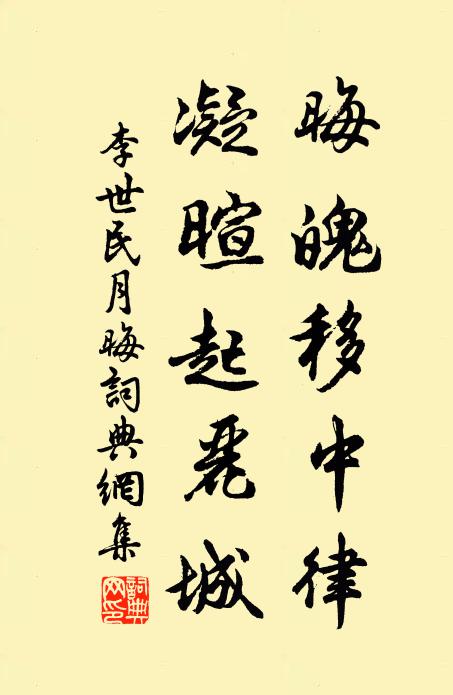 晦魄移中律
凝暄起麗城
李世民月晦詞典網集
詞典網印